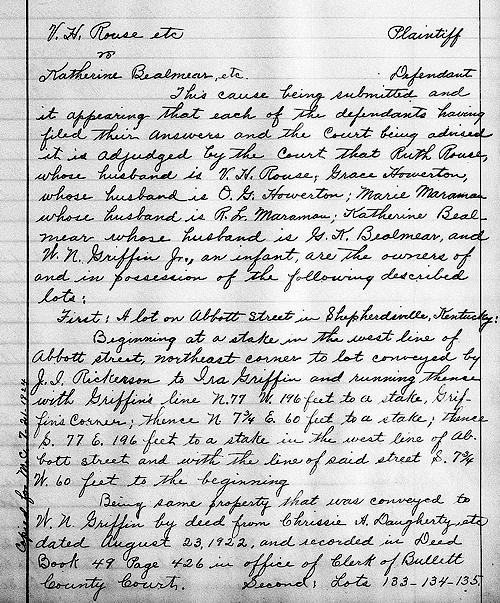 V. H. Rouse etc Plaintiff
vs
Katherine Bealmear, etc. Defendant
This cause being submitted and
it appearing that each of the defendants having
filed their answers and the Court being advised
it is adjudged by the Court that Ruth Rouse,
whose husband is V. H. Rouse; Grace Howerton,
whose husband is O. G. Howerton; Marie Maraman
whose husband is R. L. Maraman; Katherine Beal-
mear whose husband is G. K. Bealmear, and
W. N. Griffin Jr., an infant, are the owners of
and in possession of the following described
lots:
First: A lot on Abbott Street in Shepherdsville, Kentucky:
Beginning at a stake in the west line of
Abbott street, northeast corner to lot conveyed by
J. I. Rickerson to Ira Griffin and running thence
with Griffin's line N. 77 W. 196 feet to a stake, Grif-
fin's Corner; thence N 7 3/4 E. 60 feet to a stake; thence
S. 77 E. 196 feet to a stake in the west line of Ab-
bott street and with the line of said street S. 7 3/4
W. 60 feet to the beginning
Being same property that was conveyed to
W. N. Griffin by deed from Chrissie A. Daugherty, etc
dated August 23, 1922, and recorded in Deed
Book 49 Page 426 in office of Clerk of Bullett
County Court. Second: Lots 133-134-135
Copied for M.C. 7-21-1924